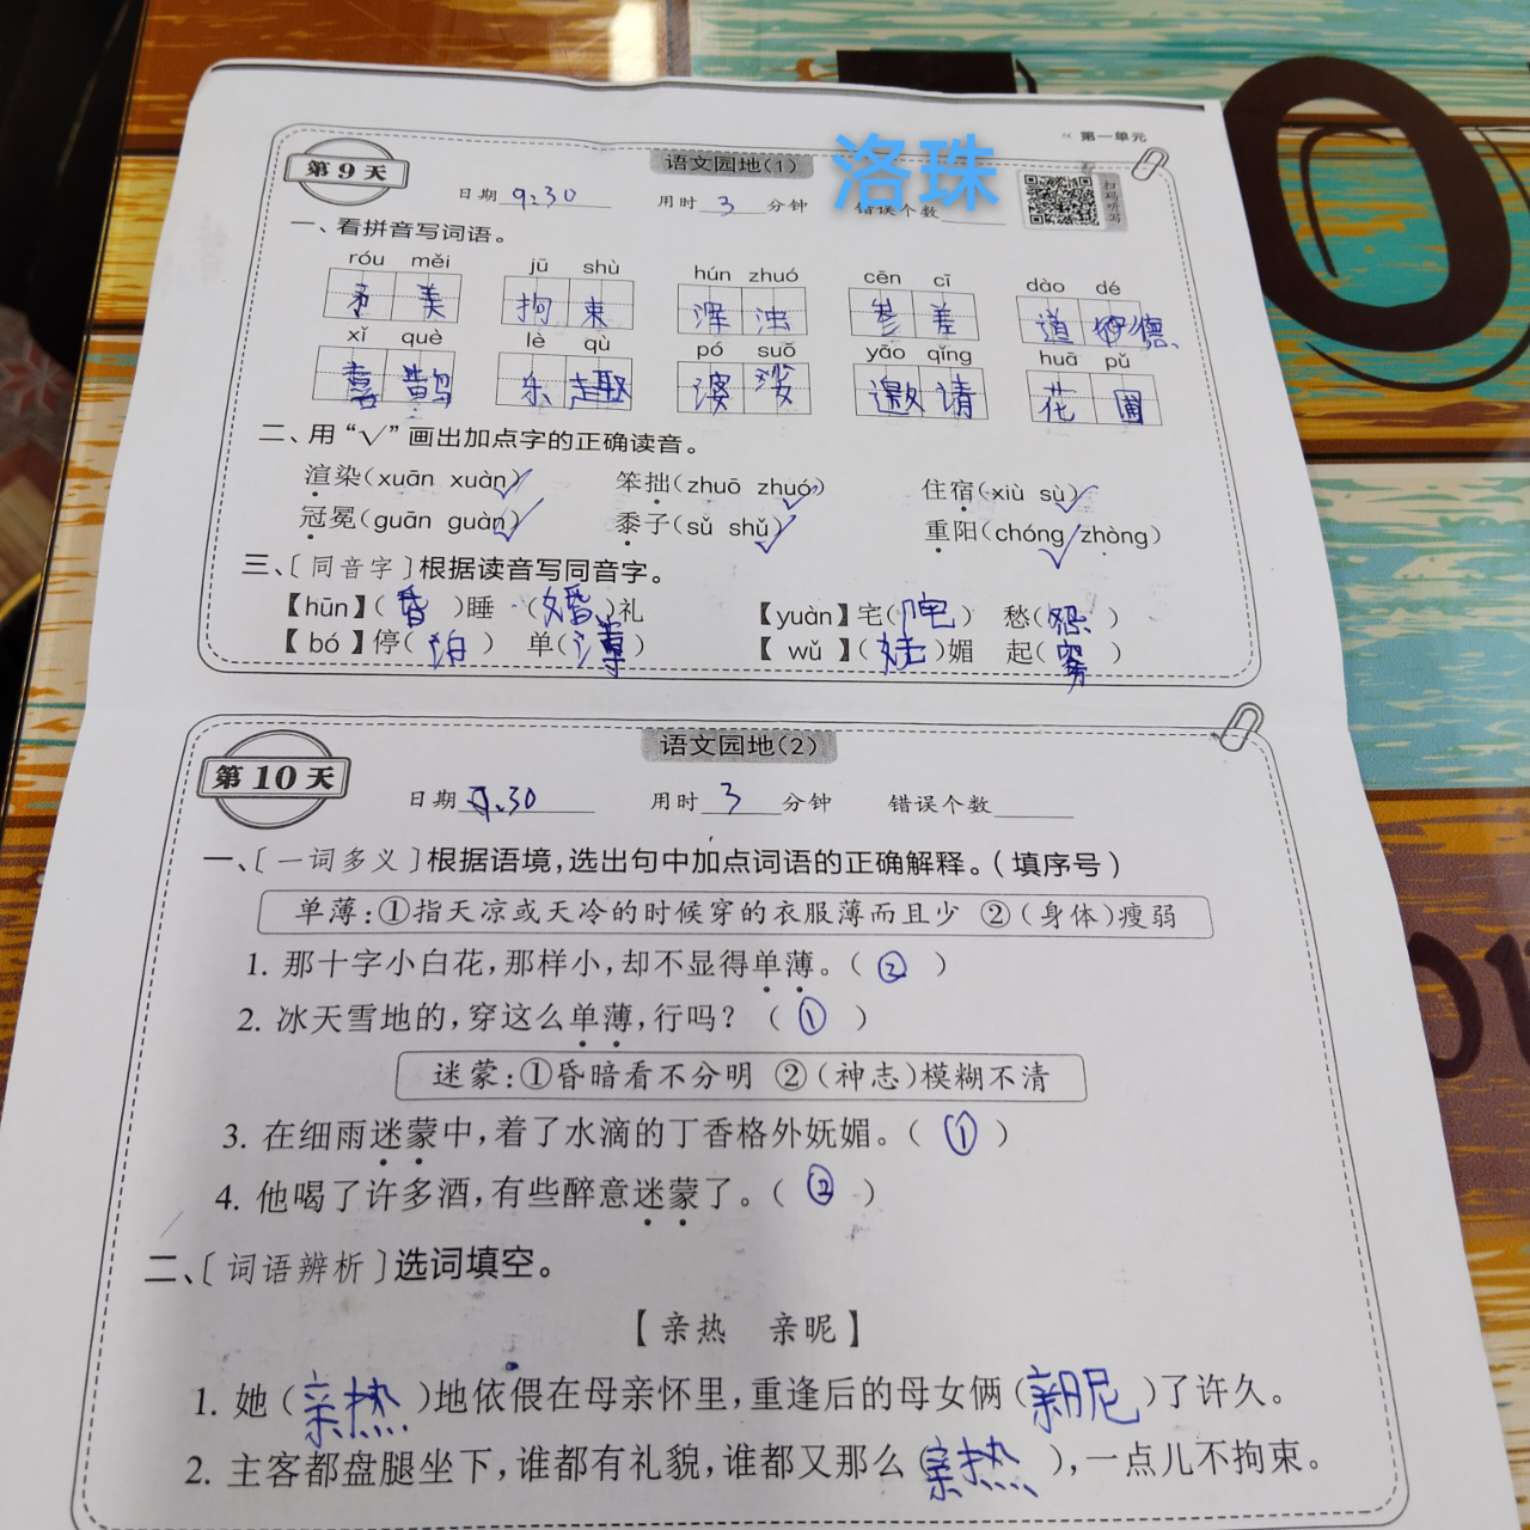 第一单元
第9天
语文园地(1)
洛珠
扫码听写
日期 9.30 用时 3 分钟 错误个数
一、看拼音写词语。
róu měi jū shù hún zhuó cēn cī dào dé
矛 美 拘 束 浑 浊 参 差 道 德、
xǐ què lè qù pó suō yāo qǐng huā pǔ
喜 鹊 乐 趣 婆 娑 邀 请 花 圃
二、用“√”画出加点字的正确读音。
渲染(xuān xuàn)√ 笨拙(zhuō zhuó)√ 住宿(xiù sù)√
冠冕(guān guàn)√ 黍子(sǔ shǔ)√ 重阳(chóng√ zhòng)
三、〔同音字〕根据读音写同音字。
【hūn】(昏)睡 (婚)礼 【yuàn】宅() 愁(怨)
【bó】停(泊) 单(薄) 【wǔ】(妩)媚 起()
第10天
语文园地(2)
日期 9.30 用时 3 分钟 错误个数
一、〔一词多义〕根据语境,选出句中加点词语的正确解释。(填序号)
单薄:①指天凉或天冷的时候穿的衣服薄而且少 ②(身体)瘦弱
1. 那十字小白花,那样小,却不显得单薄。(②)
2. 冰天雪地的,穿这么单薄,行吗?(①)
迷蒙:①昏暗看不分明 ②(神志)模糊不清
3. 在细雨迷蒙中,着了水滴的丁香格外妩媚。(①)
4. 他喝了许多酒,有些醉意迷蒙了。(②)
二、〔词语辨析〕选词填空。
【亲热 亲昵】
1. 她(亲热)地依偎在母亲怀里,重逢后的母女俩(亲昵)了许久。
2. 主客都盘腿坐下,谁都有礼貌,谁都又那么(亲热),一点儿不拘束。